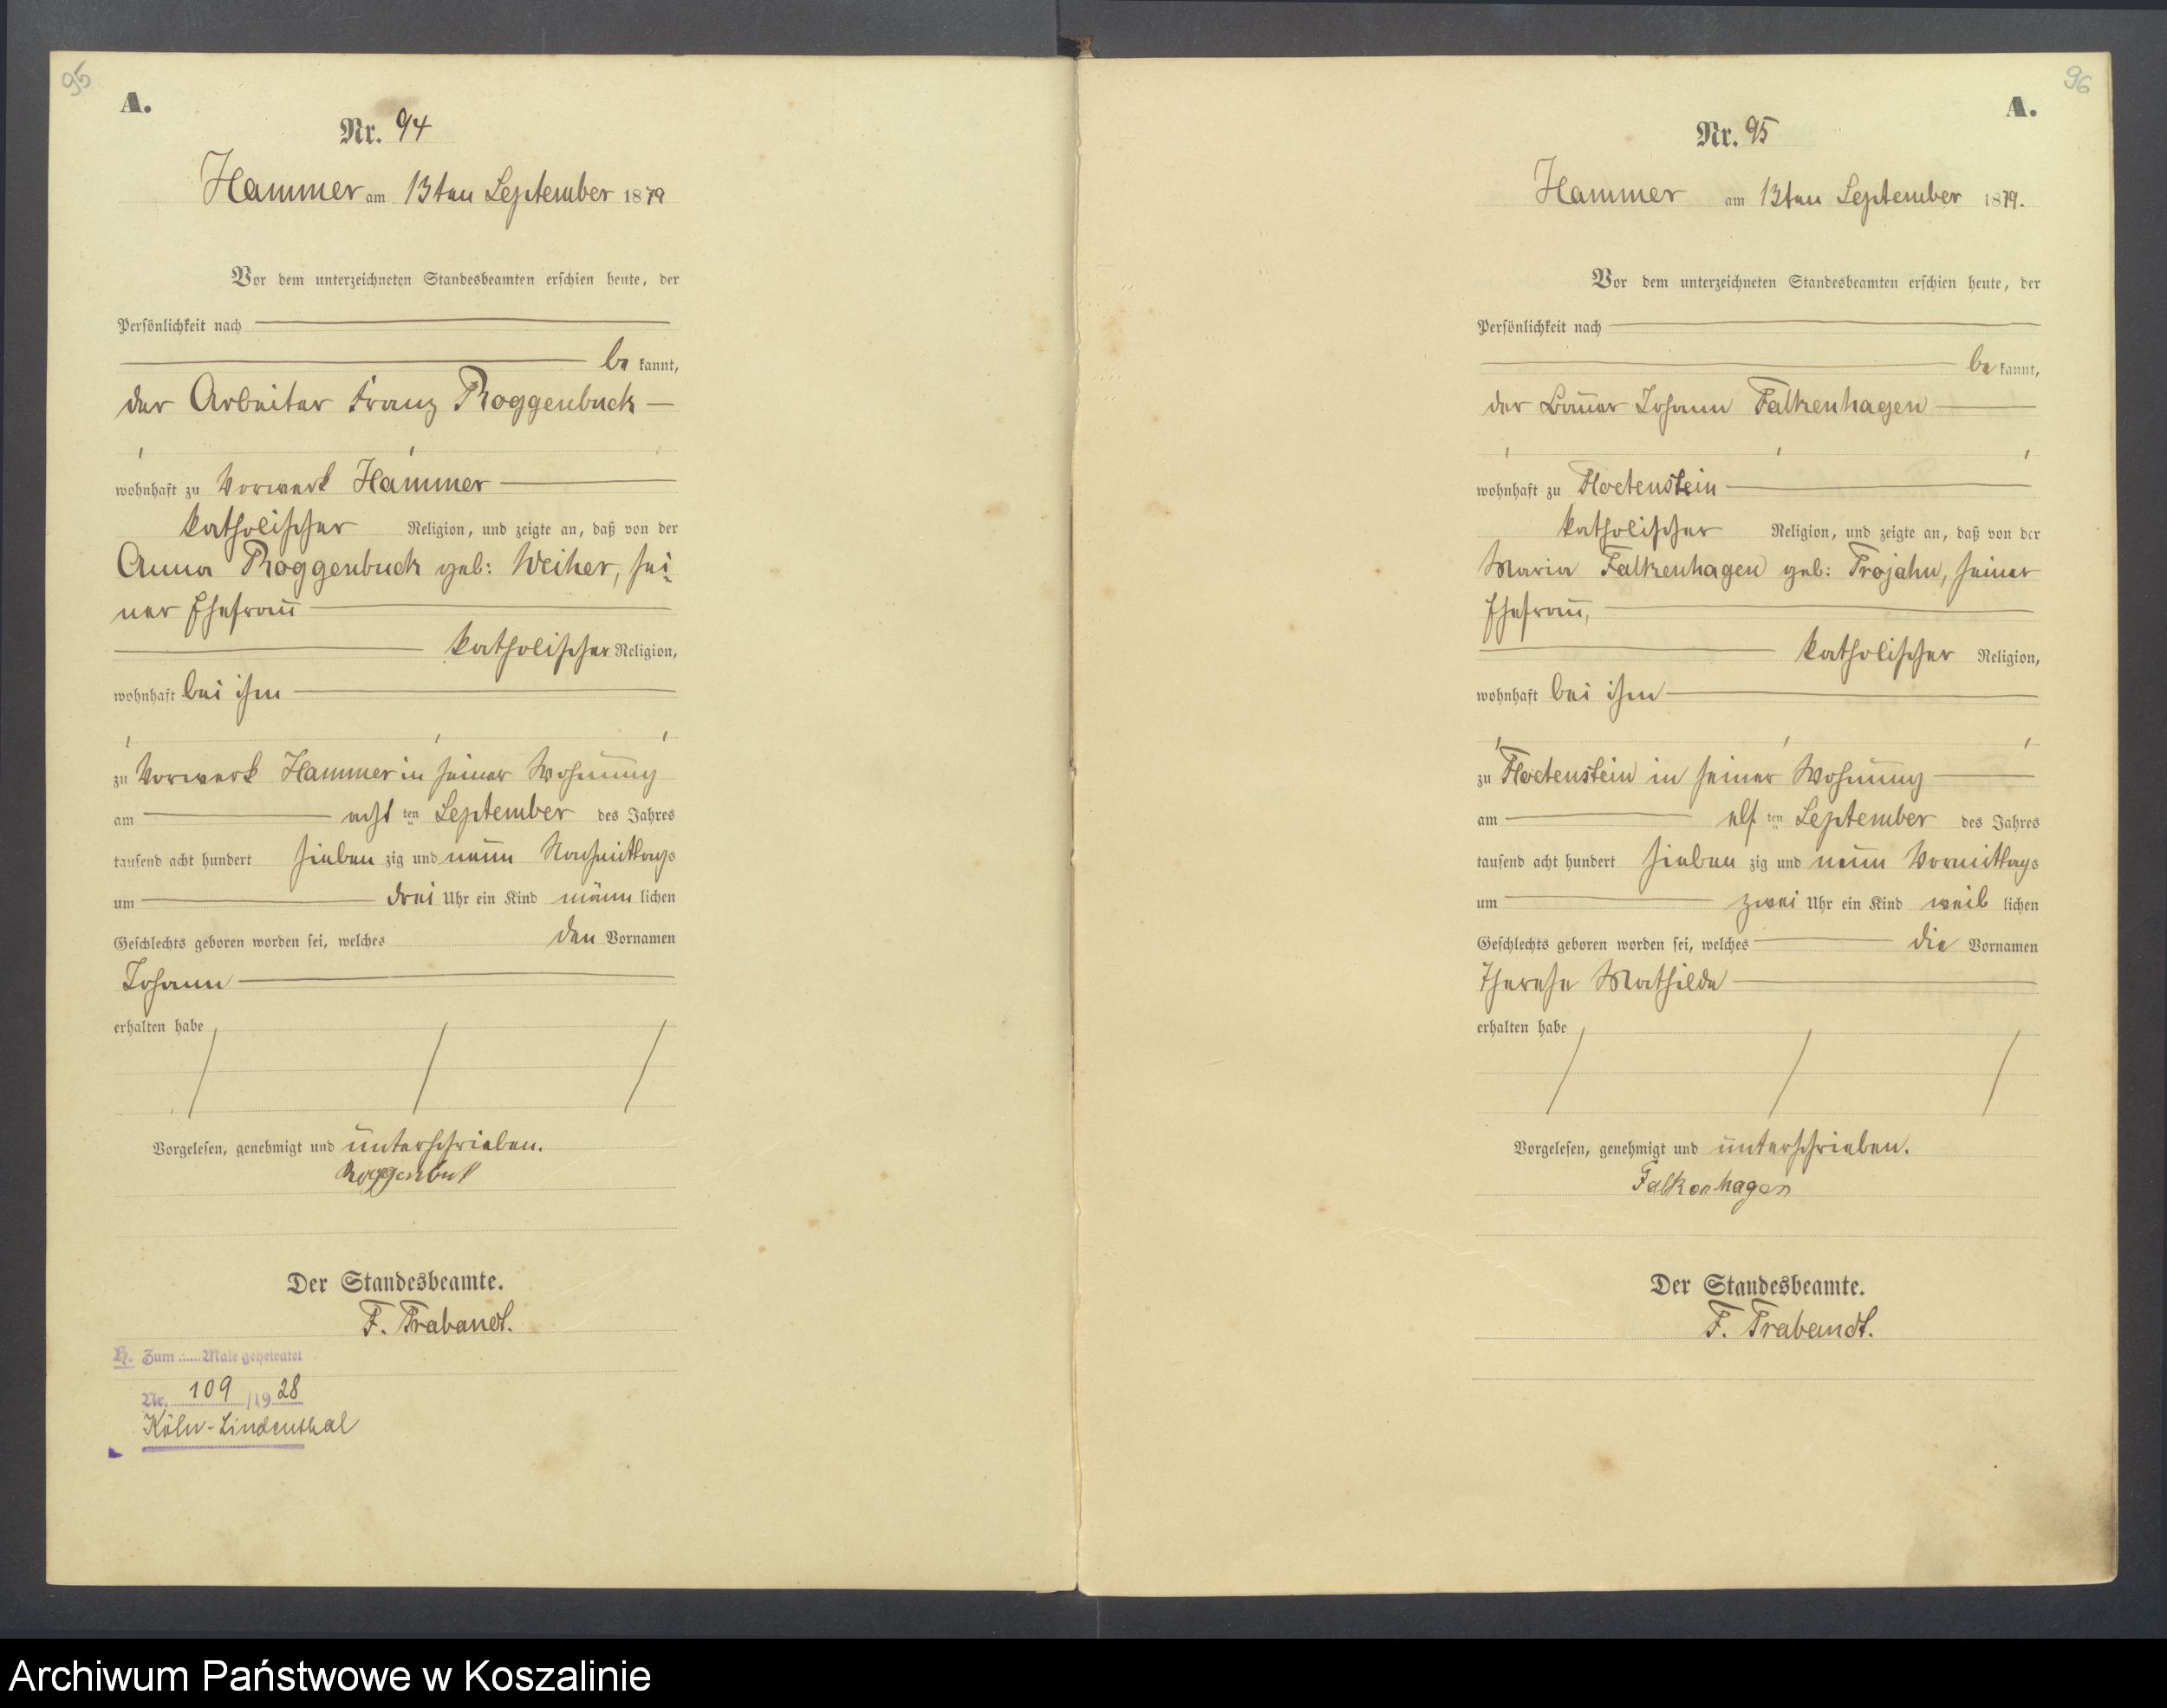 95
A.
Nr. 94
Hammer am 13ten September 1879
Vor dem unterzeichneten Standesbeamten erschien heute, der
Persönlichkeit nach
be kannt,
der Arbeiter Franz Roggenbuck
wohnhaft zu Vorwerk Hammer
katholischer Religion, und zeigte an, daß von der
Anna Roggenbuck geb: Weiher, sei-
ner Ehefrau
katholischer Religion,
wohnhaft bei ihm
zu Vorwerk Hammer in seiner Wohnung
am acht ten September des Jahres
tausend acht hundert sieben zig und neun Nachmittags
um drei Uhr ein Kind männ lichen
Geschlechts geboren worden sei, welches den Vornamen
Johann
erhalten habe
Vorgelesen, genehmigt und unterschrieben.
Roggenbuk
Der Standesbeamte.
F. Trabandt.
H. Zum ..... Male geheiratet
Nr. 109 /19 28
Köln-Lindenthal
96
A.
Nr. 95
Hammer am 13ten September 1879.
Vor dem unterzeichneten Standesbeamten erschien heute, der
Persönlichkeit nach
be kannt,
der Bauer Johann Falkenhagen
wohnhaft zu Floetenstein
katholischer Religion, und zeigte an, daß von der
Maria Falkenhagen geb: Trojahn, seiner
Ehefrau,
katholischer Religion,
wohnhaft bei ihm
zu Floetenstein in seiner Wohnung
am elf ten September des Jahres
tausend acht hundert sieben zig und neun Vormittags
um zwei Uhr ein Kind weib lichen
Geschlechts geboren worden sei, welches die Vornamen
Therese Mathilde
erhalten habe
Vorgelesen, genehmigt und unterschrieben.
Falkenhagen
Der Standesbeamte.
F. Trabandt.
Archiwum Państwowe w Koszalinie